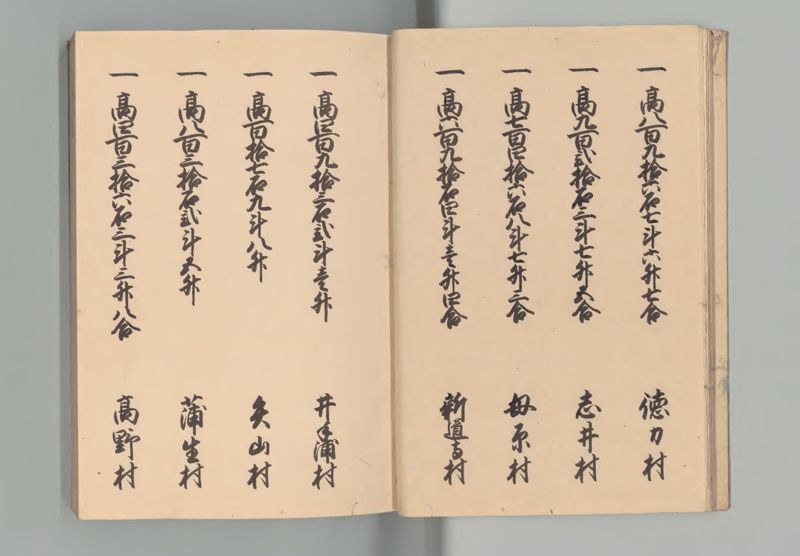 一 高八百九拾六石七斗六升七合 徳力村
一 高九百弐拾石三斗七升五合 志井村
一 高七百四拾六石八斗七升三合 母原村
一 高六百九拾石四斗壱升四合 新道寺村
一 高四百九拾三石弐斗壱升 井手浦村
一 高百拾七石九斗八升 矢山村
一 高八百三拾石弐斗五升 蒲生村
一 高四百三拾六石三斗三升八合 高野村